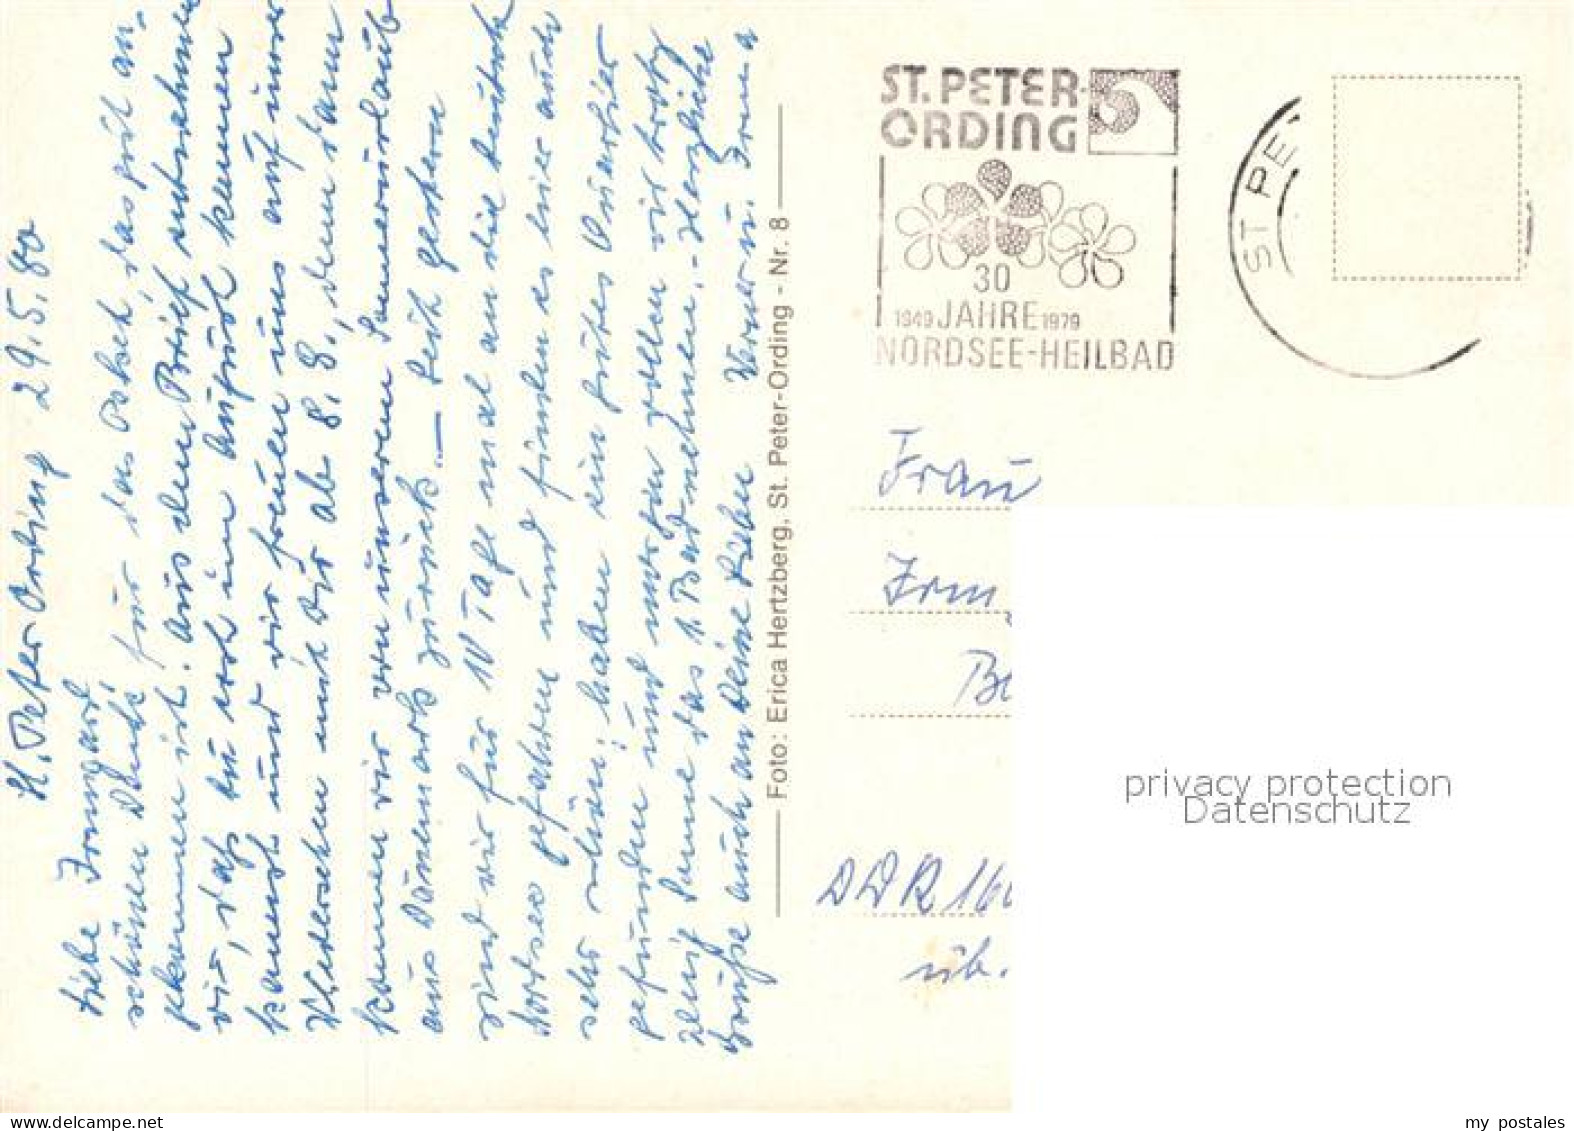 St. Peter Ording 29.5.80
Liebe Irmgard!
schönen Dank für das Päckch, das gut an-
gekommen ist. Aus dem Brief entnehmen
wir, daß Du erst im August kommen
kannst und wir freuen uns auf unser
Wiedersehen mit Dir ab 8.8., denn dann
kommen wir von unserem Sommerurlaub
aus Dänemark zurück. – Seit gestern
sind wir für 10 Tage mal an die deutsche
Nordsee gefahren und finden es hier auch
sehr schön; haben ein gutes Quartier
gefunden und morgen wollen wir trotz
wenig Sonne das 1. Bad nehmen. – Herzliche
Grüße auch an Deine Lieben Werner u. Irma
Foto: Erica Hertzberg, St. Peter-Ording - Nr. 8
ST. PETER-
ORDING
30
1949 JAHRE 1979
NORDSEE-HEILBAD
ST PE
Frau
Irm
Be
DDR 16
üb.
privacy protection
Datenschutz
my postales